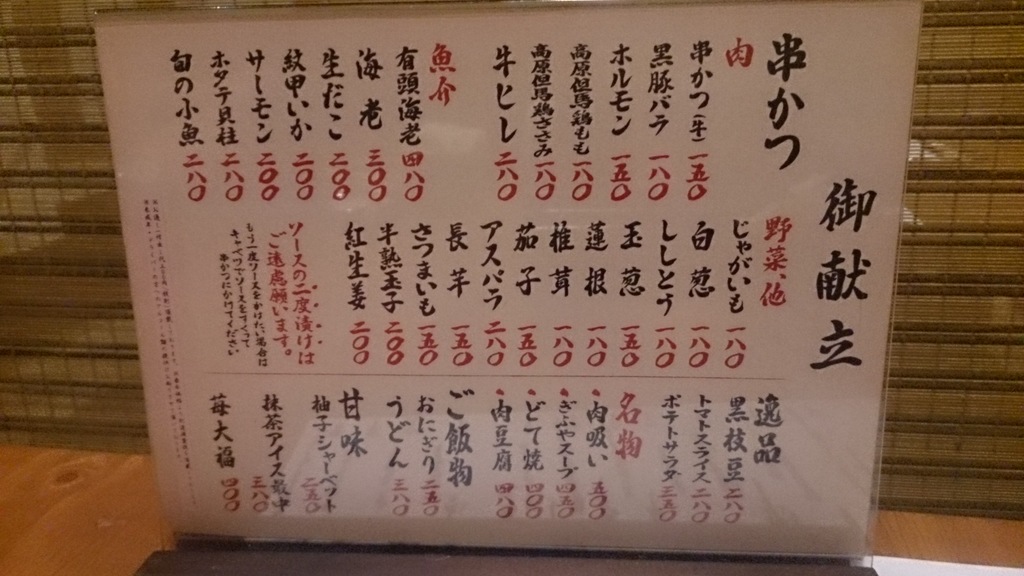 串かつ
御献立
肉
串かつ(牛) 一五〇
黒豚バラ 一八〇
ホルモン 一五〇
高原但馬鶏もも 一八〇
高原但馬鶏ささみ 一八〇
牛ヒレ 二八〇
魚介
有頭海老 四八〇
海老 三〇〇
生だこ 二〇〇
紋甲いか 二〇〇
サーモン 二〇〇
ホタテ貝柱 二八〇
旬の小魚 二八〇
野菜、他
じゃがいも 一八〇
白葱 一八〇
ししとう 一八〇
玉葱 一五〇
蓮根 一八〇
椎茸 一八〇
茄子 一五〇
アスパラ 二八〇
長芋 一五〇
さつまいも 一五〇
半熟玉子 二〇〇
紅生姜 二〇〇
ソースの二度漬けは
ご遠慮願います。
もう一度ソースをかけたい場合は
キャベツでソースをすくって
串かつにかけてください
逸品
黒枝豆 二八〇
トマトスライス 二八〇
ポテトサラダ 三五〇
名物
・肉吸い 五〇〇
・ぎふやスープ 四五〇
・どて焼 四〇〇
・肉豆腐 四八〇
ご飯物
おにぎり 二五〇
うどん 三八〇
甘味
柚子シャーベット 二五〇
抹茶アイス最中 三八〇
苺大福 四〇〇